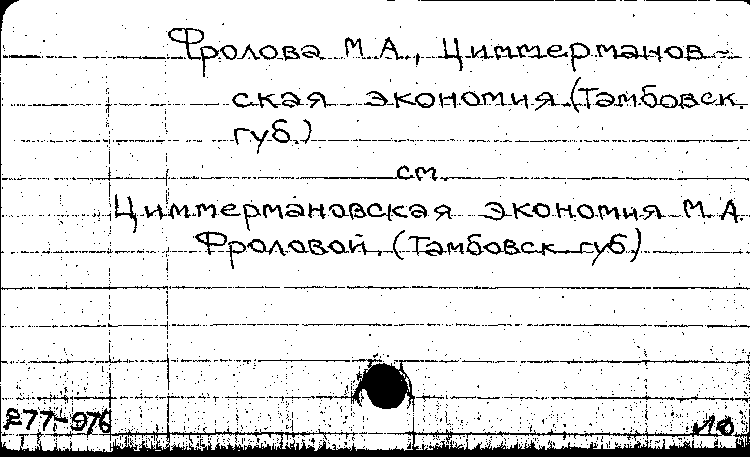 Фролова М.А., Циммерманов-
ская экономия (Тамбовск.
губ.)
см.
Циммермановская экономия М.А.
Фроловой. (Тамбовск. губ.)
77-976